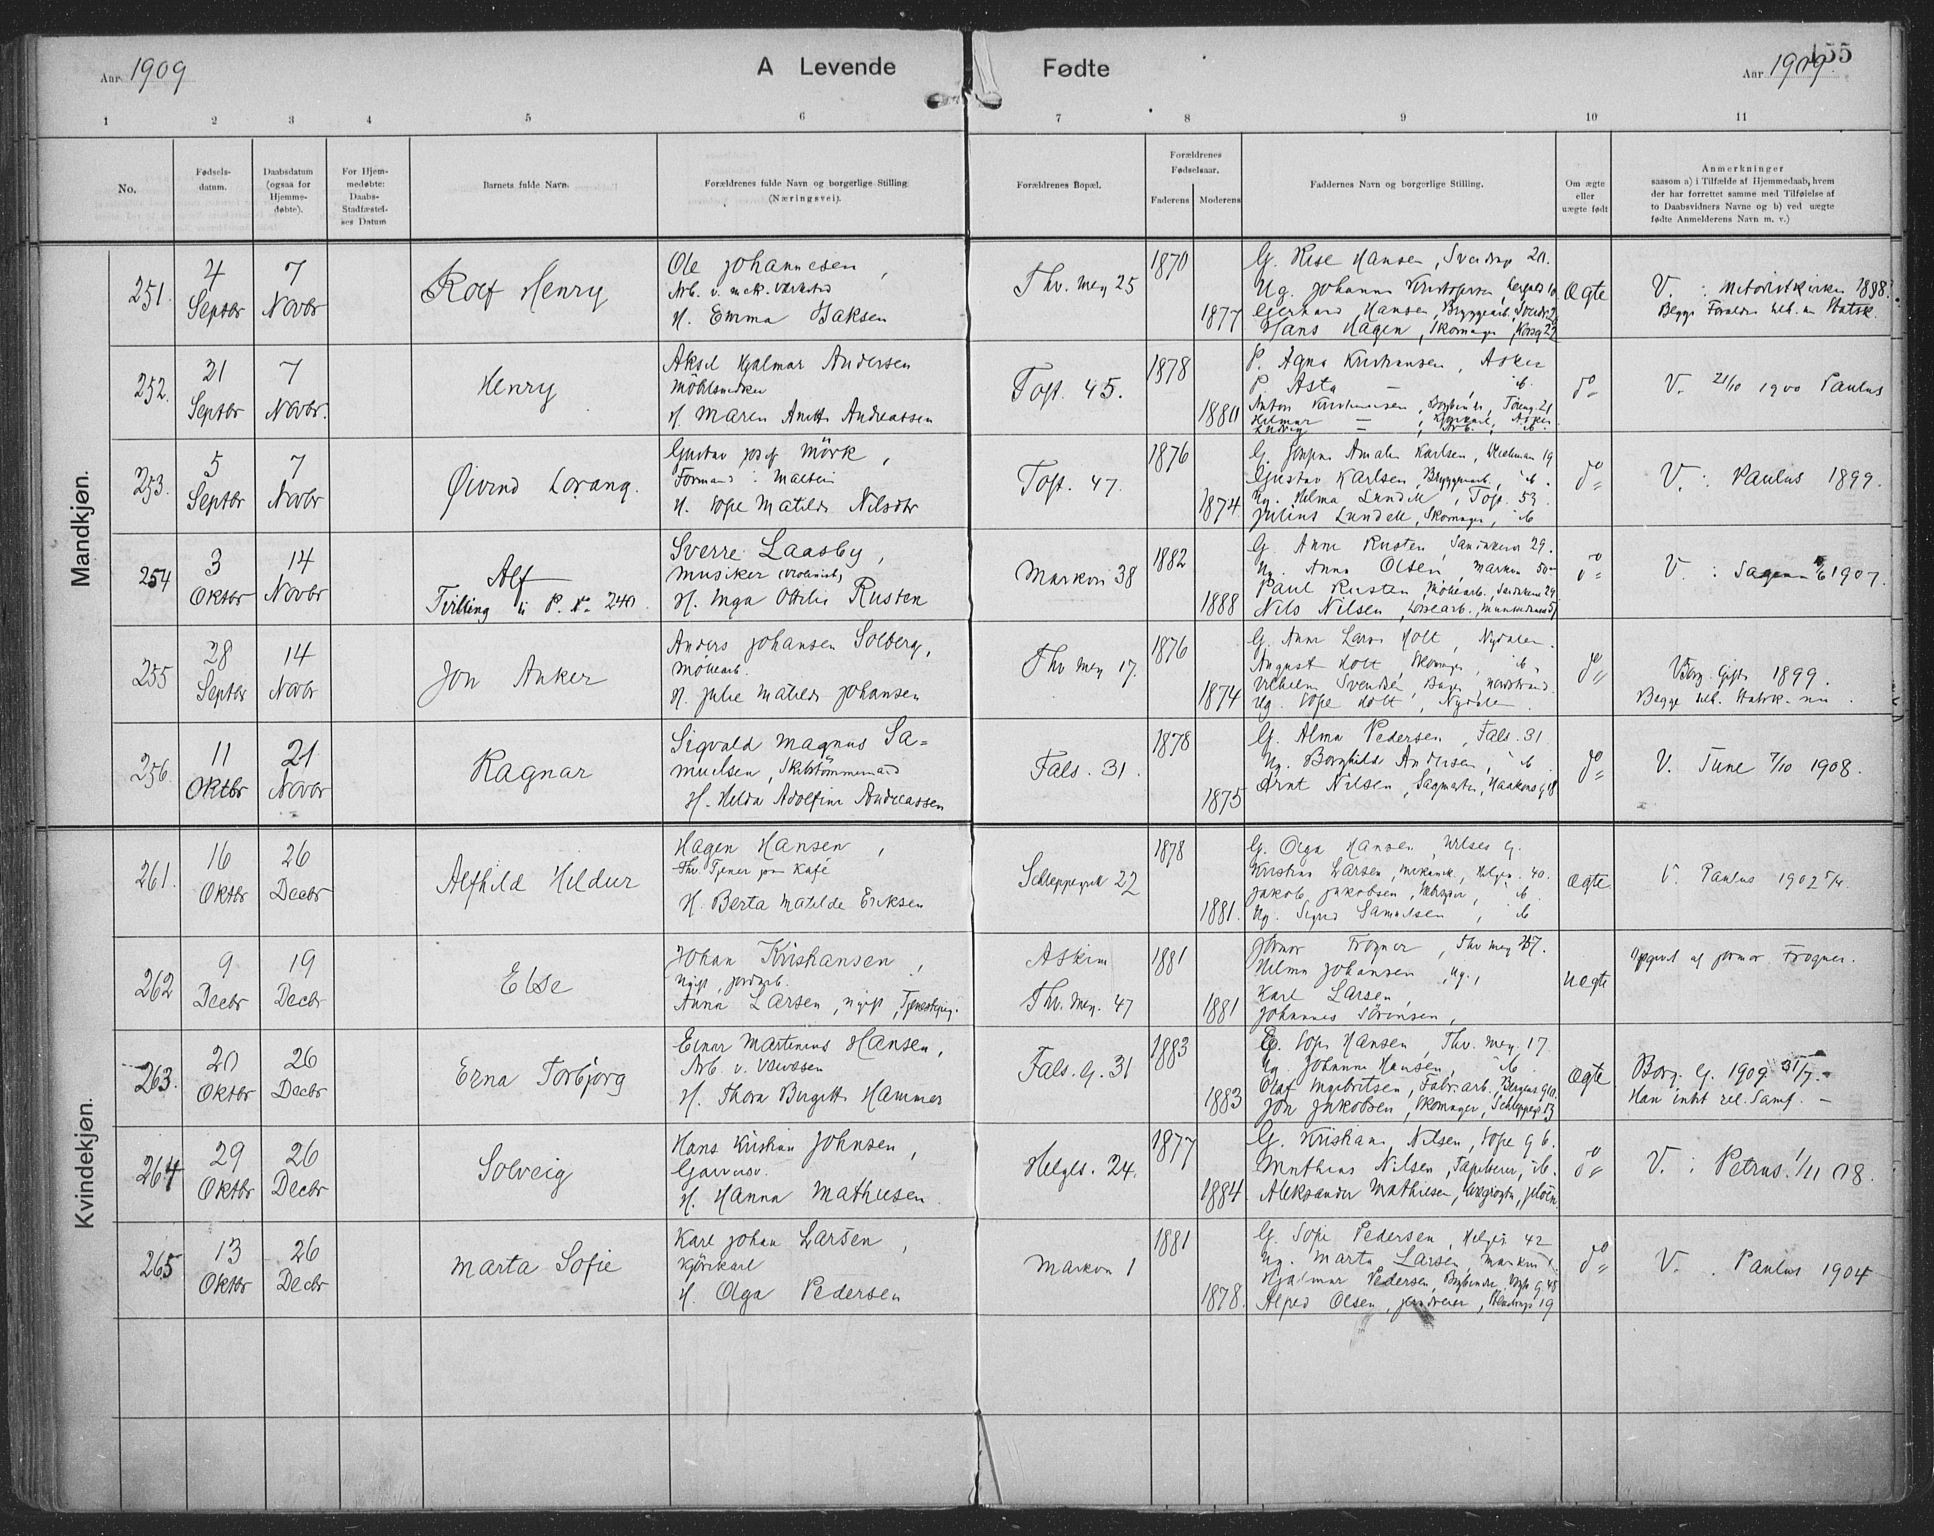 Aar 1909
A Levende
Fødte
Aar 1909.
155
1 2 3 4 5 6 7 8 9 10 11
No.
Fødsels-
datum.
Daabsdatum
(ogsaa for
Hjemme-
døbte).
For Hjem-
medøbte:
Daabs-
Stadfæstel-
ses Datum
Barnets fulde Navn.
Forældrenes fulde Navn og borgerlige Stilling
(Næringsvei).
Forældrenes Bopæl.
Forældrenes
Fødselsaar.
Faderens Moderens
Faddernes Navn og borgerlige Stilling.
Om ægte
eller
uægte født
Anmerkninger
saasom a) i Tilfælde af Hjemmedaab, hvem
der har forrettet samme med Tilføielse af
to Daabsvidners Navne og b) ved uægte
fødte Anmelderens Navn m. v.)
Mandkjøn.
251.
4
Septbr
7
Novbr
Rolf Henry
Ole Johannesen,
Arb. v. mek. Værksted
H. Emma Isaksen
Thv. mey 25
1870
1877
G. Hansen, Sverdrup 20.
Ug. Johanna
Hansen, Bryggearb.
Hans Hagen, Skomager
Ægte
V. : 1898.
Begge
252.
21
Septbr
7
Novbr.
Henry
Aksel Hjalmar Andersen
Möbelsnedker
H. Maren Anette Andreassen
Toft. 45.
1878
1880
P. Agna Kristiansen, Asker
P. Asta — ib.
Anton Kristiansen,
Hilmar —
Ludvig —
do
V. 21/10 1900 Paulus
253.
5
Septbr
7
Novbr
Øivind Lorang.
Gustav Josef Mörk,
Formand i
H. Sofie Matilde Nilsdtr
Toft. 47.
1876
1874
G. Amalie Karlsen, 19
Gustav Karlsen, Bryggearb., ib.
Ug. Helma Lundell, Toft. 53.
Julius Lundell, Skomager, ib
do
V. : Paulus 1899.
254
3
Oktbr
14
Novbr
Alf
Tvilling til P. No 240.
Sverre Laasby,
Musiker (violinist)
H. Inga Ottilie Rusten
Markvn 38
1882
1888
G. Anne Rusten, 29.
Ug. Anna Olsen, Markvn 50
Paul Rusten, Möbelarb., 29
Nils Nilsen,
do
V. : Sagene 1907.
255
28
Septbr
14
Novbr
Jon Anker
Anders Johansen Solberg,
Möbelarb.
H. Julie Matilde Johansen
Thv mey 17.
1876
1874
G. Anne Holt, Nydalen.
August Holt, Skomager, ib.
Vilhelm Svendsen, Bager, Nordstrand.
Ug. Sofie Holt, Nydalen.
do
Borg. Gifte 1899.
Begge Statsk.
256.
11
Oktbr
21
Novbr
Ragnar
Sigvald Magnus Sa=
muelsen, Skibstömmermand
H. Helda Adolfine Andreassen
Fals. 31.
1878
1875
G. Alma Pedersen, Fals. 31
Ug. Borghild Andersen, ib
Arnt Nilsen, Haakons g 18
do
V. Tune 7/10 1908.
Kvindekjøn.
261.
16
Oktbr
26
Decbr
Alfhild Hildur
Hagen Hansen,
Thv. Tjener paa Kafé
H. Berta Matilde Eriksen
Schleppegrell 22
1878
1881.
G. Olga Hansen, g.
Kristian Larsen, mekanik, Helges. 40.
Jakob Jakobsen, ib.
Ug. Sigrid Samuelsen, ib
Ægte
V. Paulus 1902
262
9
Decbr
19
Decbr
Else
Johan Kristiansen,
Ugift, jordarb.
Anna Larsen, ugift,
Askim
Thv. mey. 47
1881
1881
Jormor Frogner, Thv mey 47.
Helma Johansen, ug.,
Karl Larsen,
Johannes Sörensen,
Uegte
Opgivet af jormor Frogner.
263.
20
Oktbr
26
Decbr
Erna Torbjørg
Einar Martinius Hansen,
Arb. v.
H. Thora Birgitte Hammer
Fals. G. 31
1883
1883
G. Sofie Hansen, Thv. mey. 17.
Ug. Johanne Hansen, ib
Olaf Ingebritsen, Fabr. arb.,
Jon Jakobsen, Skomager,
Ægte
Borg. G. 1909 31/7 –
Han intet rel. Samf. –
264
29
Oktbr
26
Decbr
Solveig
Hans Kristian Johnsen,
H. Hanna Mathiesen.
Helges. 24.
1877
1884
G. Kristiane Nilsen, Sofie g 6.
Mathias Nilsen, Tapetserer, ib.
Aleksander Mathiesen,
do
V. : Petrus 1/11 08.
265
13
Oktbr
26
Decbr
Marta Sofie
Karl Johan Larsen,
Kjörekarl
H. Olga Pedersen
Markvn 1
1881
1878.
G. Sofie Pedersen, Helges. 42
Ug. Marta Larsen, Markvn 1.
Hjalmar Pedersen,
Alfred Olsen, 19
do
V. . Paulus 1904